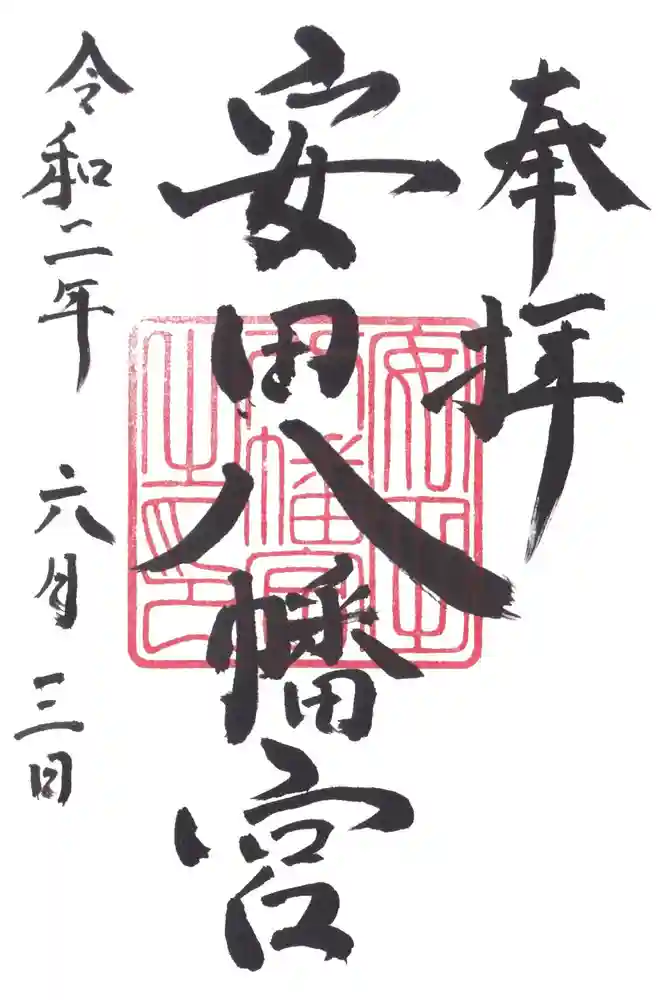 奉拝
安田八幡宮
安田八幡宮之印
令和二年 六月 三日